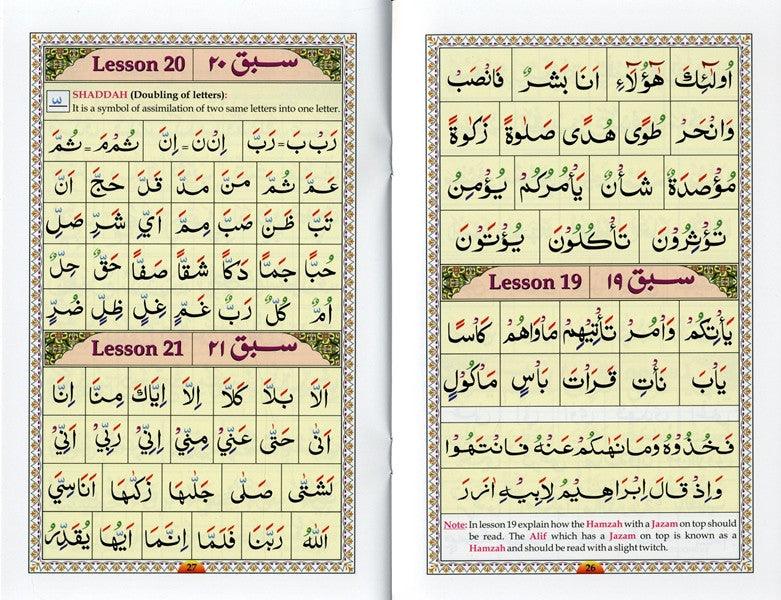 اُولٰٓئِكَ هٰٓؤُلَآءِ اَنَا بَشَرٌ فَانْصَبْ
وَانْحَرْ طُوًى هُدًى صَلٰوةً زَكٰوةً
مُؤْصَدَةٌ شَأْنٌ يَأْمُرُكُمْ يُؤْمِنُ
تُؤْثِرُوْنَ تَأْكُلُوْنَ يُؤْتَوْنَ
Lesson 19 سبق ١٩
يَاْتِكُمْ وَاْمُرْ تَاْتِيْهِمْ مَاْوَاهُمْ كَاْسًا
يَاْبَ نَاْتِ قَرَاْتَ بَاْسٍ مَاْكُوْلٍ
فَخُذُوْهُ وَمَا نَهٰىكُمْ عَنْهُ فَانْتَهُوْا
وَاِذْ قَالَ اِبْرَاهِيْمُ لِاَبِيْهِ
Note: In lesson 19 explain how the Hamzah with a Jazam on top should
be read. The Alif which has a Jazam on top is known as a
Hamzah and should be read with a slight twitch.
26
Lesson 20 سبق ٢٠
SHADDAH (Doubling of letters):
It is a symbol of assimilation of two same letters into one letter.
رَبْ بَ = رَبَّ اِنْ نَ = اِنَّ ثُمْ مَ = ثُمَّ
عَمَّ ثُمَّ مَنَّ مَدَّ قَلَّ حَجَّ اَنَّ
تَبَّ ظَنَّ صَبَّ مِمَّ اَيِّ شَرِّ صَلِّ
حُبًّا جَمًّا دَكًّا شَقًّا صَفًّا حَقٌّ حِلٌّ
اُمٌّ كُلٌّ رَبٌّ غَمٍّ غِلٍّ ظِلٍّ ضُرٍّ
Lesson 21 سبق ٢١
اَلَّا بَلَّا كَلَّا اِلَّا اِيَّاكَ مِنَّا اِنَّا
اَنّٰى حَتّٰى عَنِّيْ مِنِّيْ اِنِّيْ رَبِّيْ اَنِّيْ
لَشَتّٰى صَلّٰى جَلّٰىهَا زَكّٰىهَا اَنَاسِيَّ
اَللّٰهُ رَبَّنَا فَلَمَّا اِنَّمَا اَيُّهَا يُقَدِّرُ
27